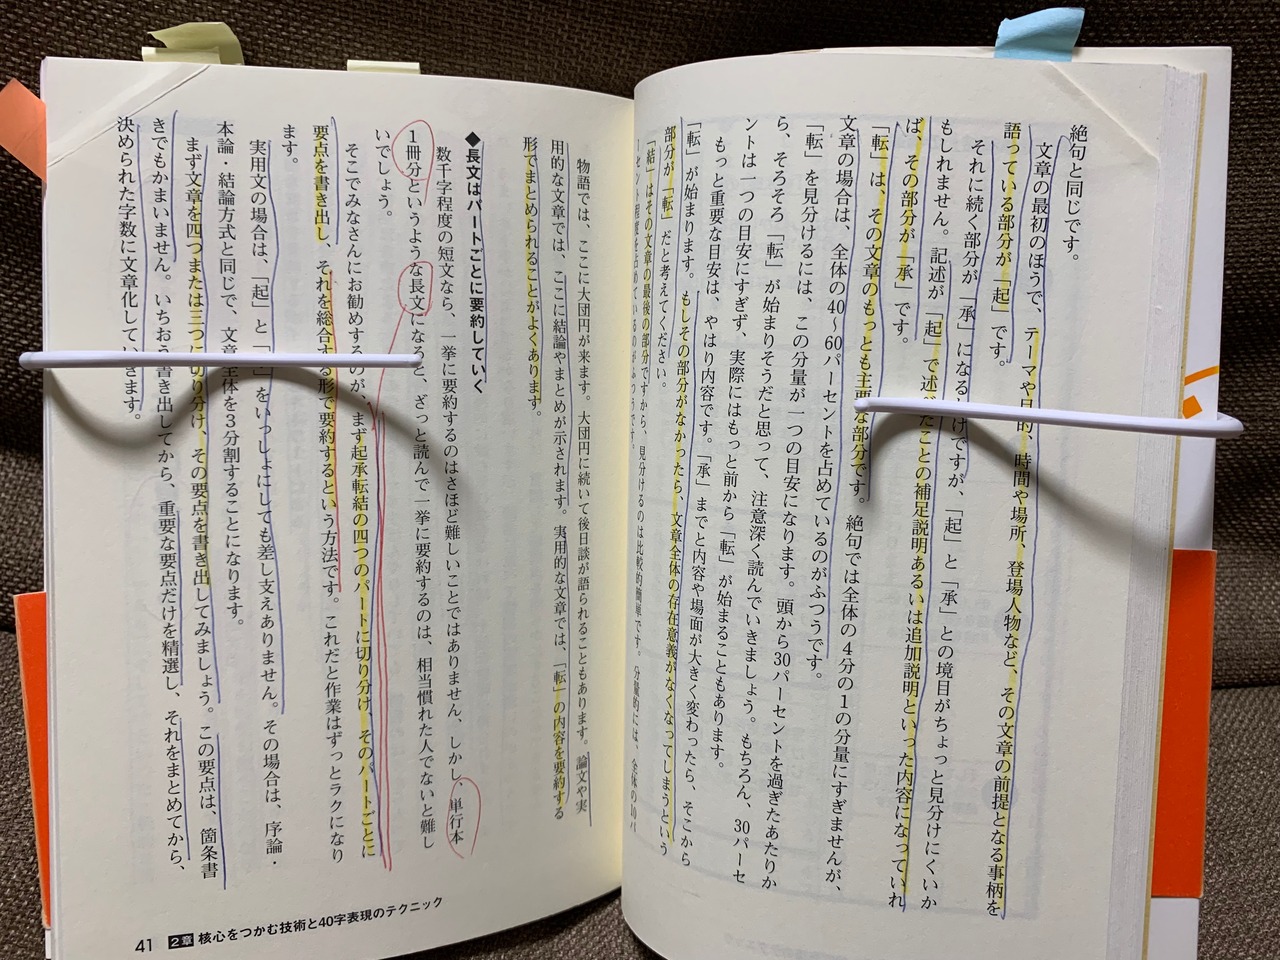 絶句と同じです。
文章の最初のほうで、テーマや目的、時間や場所、登場人物など、その文章の前提となる事柄を
語っている部分が「起」です。
それに続く部分が「承」になるわけですが、「起」と「承」との境目がちょっと見分けにくいか
もしれません。記述が「起」で述べたことの補足説明あるいは追加説明といった内容になっていれ
ば、その部分が「承」です。
「転」は、その文章のもっとも主要な部分です。絶句では全体の4分の1の分量にすぎませんが、
文章の場合は、全体の40〜60パーセントを占めているのがふつうです。
「転」を見分けるには、この分量が一つの目安になります。頭から30パーセントを過ぎたあたりか
ら、そろそろ「転」が始まりそうだと思って、注意深く読んでいきましょう。もちろん、30パーセ
ントは一つの目安にすぎず、実際にはもっと前から「転」が始まることもあります。
もっと重要な目安は、やはり内容です。「承」までと内容や場面が大きく変わったら、そこから
「転」が始まります。もしその部分がなかったら、文章全体の存在意義がなくなってしまうという
部分が「転」だと考えてください。
「結」はその文章の最後の部分ですから、見分けるのは比較的簡単です。分量的には、全体の10パ
ーセント程度を占めているのがふつうです。
物語では、ここに大団円が来ます。大団円に続いて後日談が語られることもあります。論文や実
用的な文章では、ここに結論やまとめが示されます。実用的な文章では、「転」の内容を要約する
形でまとめられることがよくあります。
◆長文はパートごとに要約していく
数千字程度の短文なら、一挙に要約するのはさほど難しいことではありません、しかし、単行本
1冊分というような長文になると、ざっと読んで一挙に要約するのは、相当慣れた人でないと難し
いでしょう。
そこでみなさんにお勧めするのが、まず起承転結の四つのパートに切り分け、そのパートごとに
要点を書き出し、それを総合する形で要約するという方法です。これだと作業はずっとラクになり
ます。
実用文の場合は、「起」と「承」をいっしょにしても差し支えありません。その場合は、序論・
本論・結論方式と同じで、文章全体を3分割することになります。
まず文章を四つまたは三つに切り分け、その要点を書き出してみましょう。この要点は、箇条書
きでもかまいません。いちおう書き出してから、重要な要点だけを精選し、それをまとめてから、
決められた字数に文章化していきます。
41 2章 核心をつかむ技術と40字表現のテクニック